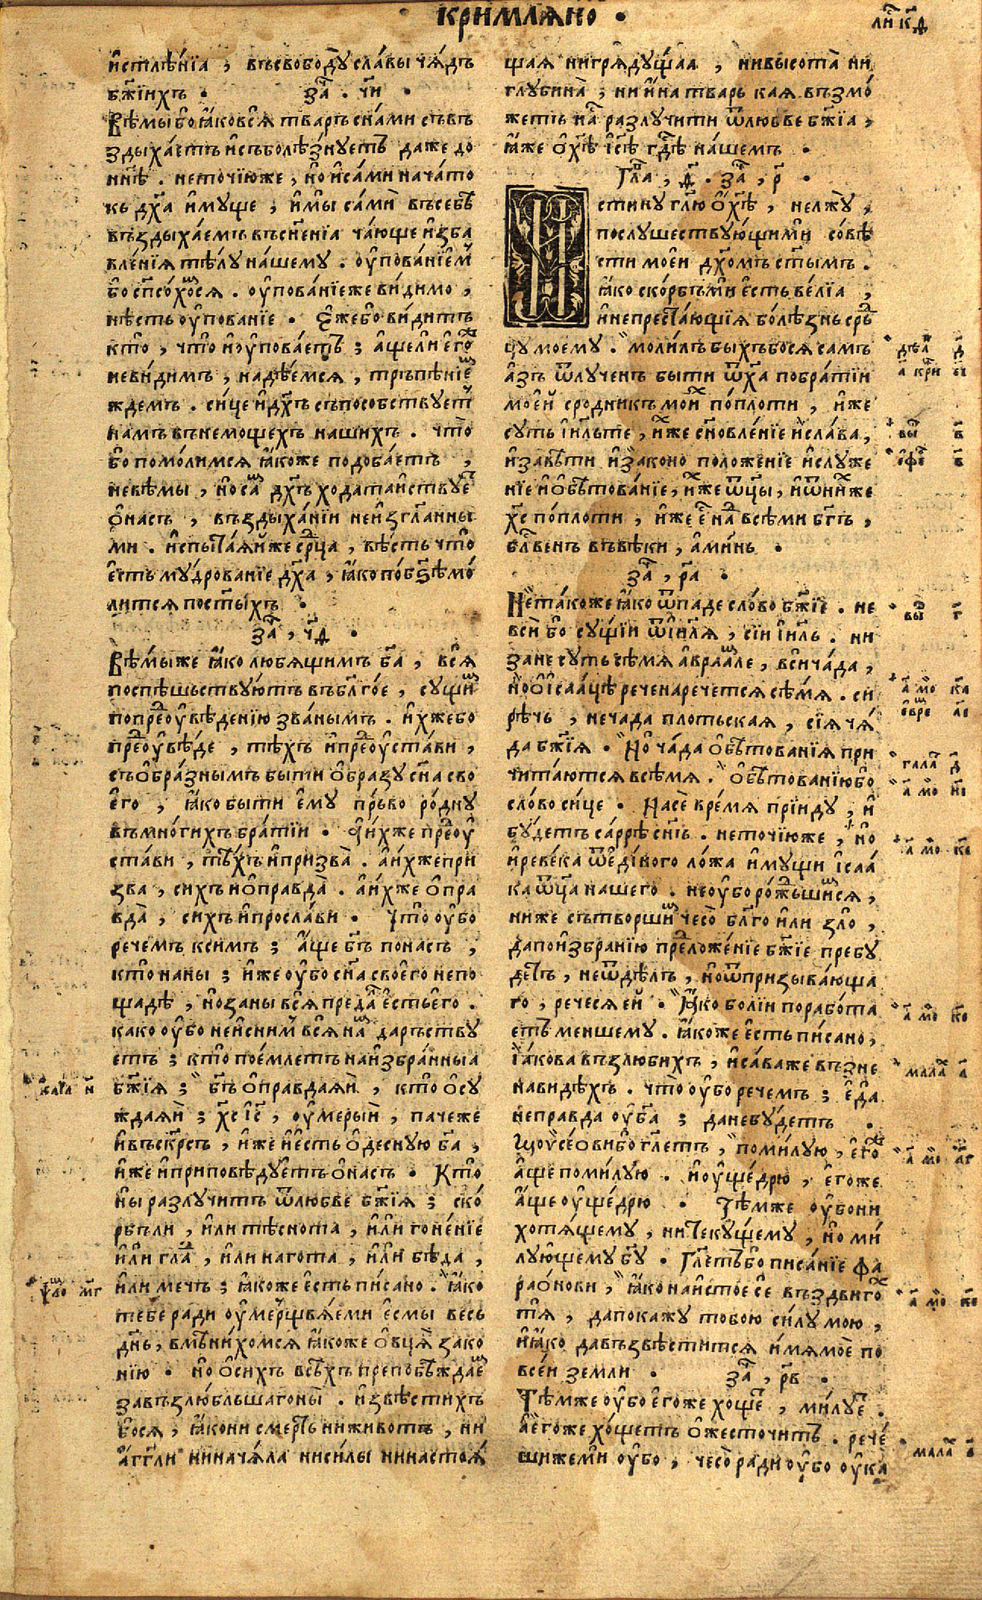 · Кримлѧно ·
и҆стлѣ́нїа , въсвобо́дꙋ сла́вы чѧ́дъ
бж҃їихъ · за҄ . чи҃ ·
Вѣ́мы бо ꙗ҆́ковсѧ тва́рь сна́ми съвъ
зды ха́етъ и҆съболѣ́знꙋетъ да́же до
нн҃ѣ . неточїюже , но и҆са́ми нача́то
къ дх҃а и҆мꙋще , и҆мы́ са́мѝ въсебѣ̀
въздыха́емъ въсн҃енїа ча́юще и҆зба
вле́нїѧ тѣ́лꙋ на́шемꙋ . оу҆пова́нїемⷨ
бо сп҃сохомсѧ . оу҆пова́нїеже ви́димо ,
нѣ́сть оу҆пова́нїе · Е҆́жебо ви́дитъ
кто̀ , что̀ и҆оу҆пова́етъ ; а҆́щели е҆го́же
неви́димъ , надѣ́емсѧ , тръпѣ́нїемⷨ
ждемъ . си́це и҆дх҃ъ съпосо́бствꙋетⷮ
на́мъ въне́мощехъ на́шихъ . что̀
бо помо́лимсѧ ꙗ҆́коже подоба́етъ ,
невѣ́мы , но са́мⷨ дх҃ъ хода́таиствꙋеⷮ
ѡ҆на́съ , въздыха́нїи неизгл҃анны
ми . и҆спыта́ѧи же ср҃ца , вѣ́сть что̀
е҆́сть мꙋ́дрованїе дх҃а , ꙗ҆́ко побз҃ѣ мо́
литсѧ постⷯы́хъ ·
за҄ , ч҃д ·
Вѣ́мыже ꙗ҆́ко лю́бѧщимъ бг҃а , всѧ̀
поспѣ́шьствꙋютъ въбл҃го́е , сꙋ́щимⷨ
попреⷣоу҆вѣ́денїю зва́нымъ . и҆́хжебо
преⷣоу҆вѣ́де , тѣ́хъ и҆преⷣоу҆ста́ви ,
съѡ҆бра́знымъ бы́ти ѡ҆́бразꙋ сн҃а сво
е҆го̀ , ꙗ҆́ко бы́ти е҆мꙋ̀ пръ́во ро́днꙋ
въмно́гихъ бра́тїи · а҆и҆́хже преⷣоу҆
ста́ви , тѣ́хъ и҆призва̀ . а҆и҆́хже при
зва̀ , си́хъ и҆ѡ҆правда̀ . а҆и҆́хже ѡ҆пра
вда̀ , си́хъ и҆просла́ви · Что̀ оу҆бо
рече́мъ ксимъ ; а҆́ще бг҃ъ пона́съ ,
кто̀ наны̀ ; и҆́же оу҆бо сн҃а своего̀ непо
щадѣ̀ , но за́ны всѧ̀ преда́лъ е҆́стьего̀ .
ка́ко оу҆бо неи҆сни́мъ всѧ̀ на́мⷨ да́рьствꙋ
етъ ; кто̀ пое́млетъ на и҆збра́нныа
бж҃їѧ ; бг҃ъ ѡ҆правда́ѧи , кто̀ ѡ҆сꙋ
жда́ѧи ; хс҃ іс҃ , оу҆ме́рыи , па́чеже
и҆въскр҃съ , и҆́же и҆е҆́сть ѡ҆деснꙋ́ю бг҃а ,
и҆́же и҆припо́вѣдꙋетъ ѡ҆на́съ · Кто̀
ны̀ разлꙋчи́тъ ѿлюбве бж҃їѧ ; ско́
рбьли , и҆ли тѣснота , и҆́ли гоне́нїе
и҆́ли гла́дⷣ , и҆ли нагота , и҆́ли бѣда̀ ,
и҆ли мечь ; ꙗ҆́коже е҆́сть пи́сано . ꙗ҆́ко
тебе́ ради оу҆мерщвлѧ́еми е҆смы̀ весь
дн҃ь , вмѣни́хомсѧ ꙗ҆́коже ѡ҆́вцѧ зако
нїю · но ѡ҆си́хъ всѣ́хъ препобѣжда́емⷨ
завъзлю́бльшагоны̀ . и҆звѣ́стихъ
бо́сѧ , ꙗ҆́кони сме́рть ниживо́тъ , ни
а҆́гг҃ли ни нача́ла ниси́лы нинастоѧ́
щаѧ нигрѧдꙋ́щаѧ , нивысота̀ ни
глꙋбина̀ ; ни и҆́на тва́рь ка́ѧ възмо́
жетъ на́съ разлꙋчи́ти ѿлюбве бж҃їа ,
ꙗ҆́же ѡ҆хе҃ і҆сѣ҃ гд҃ѣ на́шемъ ·
Гла҃ , д҃ . за҄ , р҃ ·
Истинꙋ гл҃ю ѡ҆хѣ҃ , нелжꙋ̀ ,
послꙋшествꙋющими со́вѣ
сти мое́и дх҃омъ ст҃ымъ .
ꙗ҆́ко ско́рбьми е҆́сть ве́лїа ,
и҆непреста́ющїѧ болѣ́знь срⷣ
цꙋ моемꙋ . моли́лъ быхъбосѧ самъ
а҆́зъ ѿлꙋченъ бы́ти ѿх҃а побра́тїи
мое́й сро́дникъ мои҆ⷯ попло́ти , и҆́же
сꙋть і҆и҃льте , и҆́хже сн҃овле́нїе и҆сла́ва ,
и҆завѣ́ти и҆зако́но положе́нїе и҆слꙋже
нїе и҆ѡ҆бѣтова́нїе , и҆́хже ѿц҃ы , и҆ѿни́хже
хс҃ попло́ти , и҆́же е҆́сть надⷣ всѣ́ми бг҃ъ ,
бл҃ве́нъ въвѣ́ки , а҆ми́нь ·
за҄ , р҃а ·
Нета́коже ꙗ҆́ко ѿпаде сло́во бж҃їе . не
вси́ бо̀ сꙋ́щїи ѿі҆и҃лѧ , сїи і҆и҃ль . ни
зане сꙋть сѣ́мѧ а҆враа́мле , вси ча́да ,
но ѡ҆і҆саа́цѣ речена́речетсѧ сѣ́мѧ . си́
рѣчь , неча́да пло́тьскаѧ , сїѧ ча́
да бж҃їѧ . Но̀ ча́да ѡ҆бѣтова́нїѧ при
чита́ютсѧ всѣ́мѧ . ѡ҆бѣтова́нїюбо
сло́во си́це · Насе вре́мѧ прїидꙋ , и҆
бꙋ́детъ са́ррѣ сн҃ъ . неточїюже , но
и҆реве́ка ѿе҆ди́ного ло́жа и҆мꙋщи і҆саа́
ка ѿц҃а на́шего . неоу҆бо ро́жⷣьшимсѧ ,
ниже сътво́ршимⷨ чесо̀ бл҃го и҆ли зло̀ ,
дапои҆збра́нїю преⷣложе́нїе бж҃їе пребꙋ́
детъ , неѿдѣ́лъ , но ѿпризыва́юща
го , рече́сѧ ей · Ꙗ҆́ко бо́лїи порабо́та
етъ ме́ншемꙋ . ꙗ҆́коже е҆́сть пи́сано ,
і҆а́кова възлюби́хъ , и҆са́важе възне
нави́дѣхъ . что̀ оу҆бо рече́мъ ; е҆да̀
непра́вда оу҆бг҃а ; дане бꙋ́детъ ·
помилꙋю , е҆го́же
а҆́ще поми́лꙋю . и҆оу҆ще́дрю , е҆го́же
а҆́ще оу҆ще́дрю · Тѣ́мже оу҆бони
хотѧ́щемꙋ , нитекꙋщемꙋ , но ми́
лꙋющемꙋ бг҃ꙋ · Гл҃етъбо писа́нїе фа
рао́нови , ꙗ҆́ко наи́стое се въздвиго́хⷯ
тѧ , дапокажꙋ тобо́ю си́лꙋ мою̀ ,
и҆ꙗ҆́ко давъзвѣсти́тсѧ и҆мѧмоѐ по
все́и земли · за҄ , р҃в ·
Тѣ́мже оу҆бо е҆го́же хощеⷮ , ми́лꙋеⷮ .
а҆е҆го́же хо́щетъ ѡ҆жесточи́тъ . рече́
шижеми оу҆бо , чесо̀ ра́ди оу҆бо оу҆ка